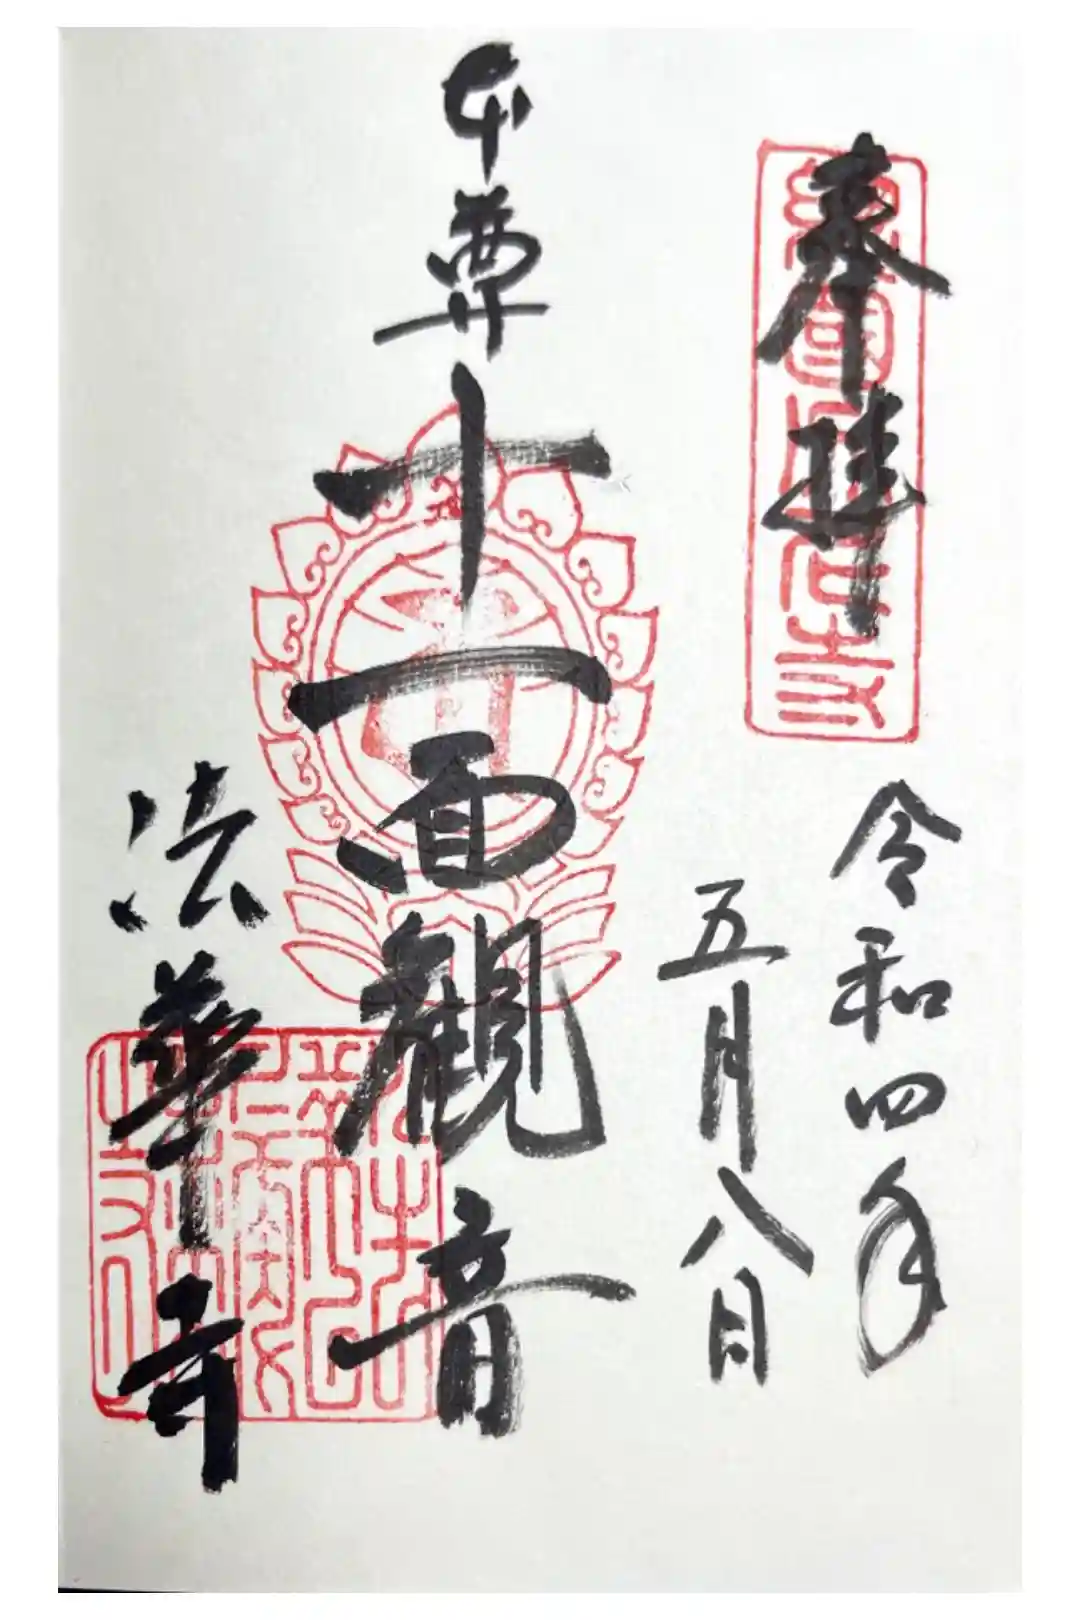 奉拝
令和四年
五月八日
本尊十一面観音
法華寺
總國尼寺